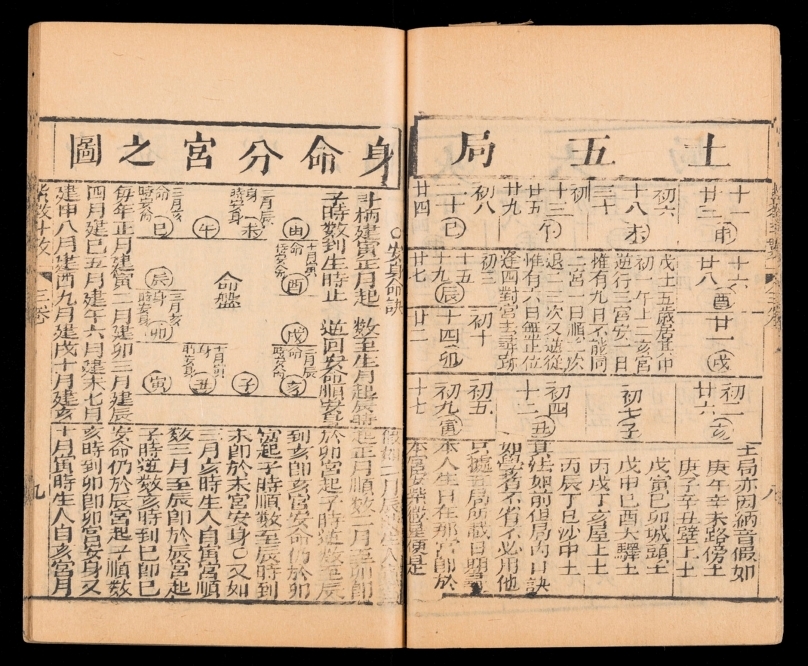 土五局
十一
廿三
申
十六
廿八
酉
廿一
戌
初一
廿六
亥
初六
十八
未
三十
初二
十三
午
廿五
廿九
初八
二十
巳
廿四
戊土五歲居其中
初一午上二亥宮
逆行三宮安一日
惟有九日不能同
二宮一日順一次
退二三次又逆從
惟有六日無正位
逢四對宮去尋跡
初三
十五
十九
辰
廿七
初十
十四
卯
廿二
初七
子
初四
十二
丑
初五
初九
寅
十七
土局亦因納音假如
庚午辛未路傍土
庚子辛丑壁上土
戊寅己卯城頭土
戊申己酉大驛土
丙戌丁亥屋上土
丙辰丁巳沙中土
其法如前但局內口訣
如學者不省不必用他
只據五局所載日期
本人生日在那宮即於
本宮安紫微星便是
紫微斗數
三卷
八
身命分宮之圖
安身命訣
斗柄建寅正月起 數至生月起辰時
子時數到生時止 逆回安命順安身
命盤
巳
午
未
申
酉
戌
亥
子
丑
寅
卯
辰
每年正月建寅二月建卯三月建辰
四月建巳五月建午六月建未七月
建申八月建酉九月建戌十月建亥
起正月順數二月至卯即
於卯宮起子時逆數至辰
到亥即亥宮安命仍於卯
宮起子時順數至辰時到
未即於未宮安身〇又如
三月亥時生人自寅宮順
數三月至辰即於辰宮起
子時逆數亥時到巳即巳
安命仍於辰宮起子順數
亥時到卯即卯宮安身又
十月寅時生人自亥宮月
紫微斗數
三卷
九